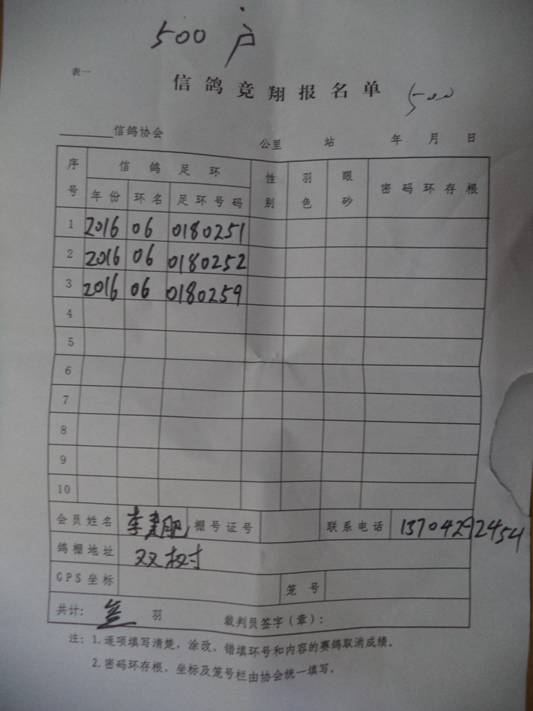 500 户
表一
信鸽竞翔报名单 500
信鸽协会 公里 站 年 月 日
序号 信鸽足环 性别 羽色 眼砂 密码环存根
年份 环名 足环号码
1 2016 06 0180251
2 2016 06 0180252
3 2016 06 0180259
4
5
6
7
8
9
10
会员姓名 李 棚号证号 联系电话 13704292454
鸽棚地址 双树
GPS坐标 笼号
共计: 羽 裁判员签字(章):
注: 1.逐项填写清楚, 涂改、错填环号和内容的赛鸽取消成绩。
2.密码环存根, 坐标及笼号栏由协会统一填写。